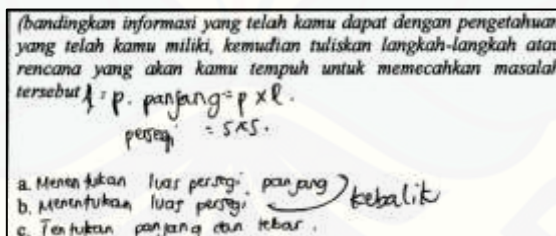 (bandingkan informasi yang telah kamu dapat dengan pengetahuan
yang telah kamu miliki, kemudian tuliskan langkah-langkah atau
rencana yang akan kamu tempuh untuk memecahkan masalah
tersebut p. panjang = p x l.
persegi = s x s.
a. Menentukan luas persegi panjang
b. Menentukan luas persegi kebalik
c. Tentukan panjang dan lebar.